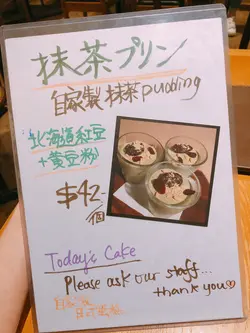 抹茶プリン
自家製 抹茶 pudding
北海道紅豆
+黄豆粉
$42-
個
Today's Cake
Please ask our staff...
thank you♡